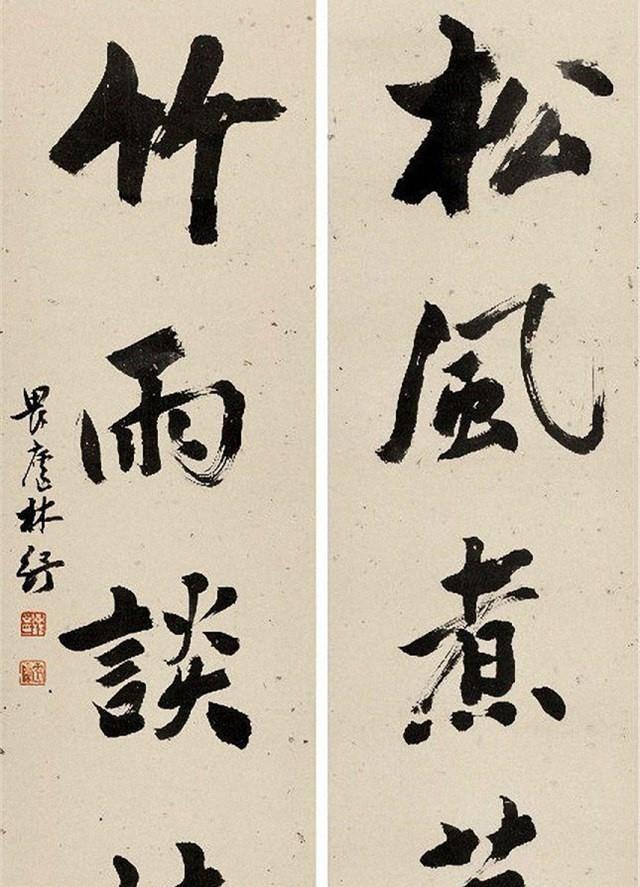 松風煮
竹雨談
畏廬林紓